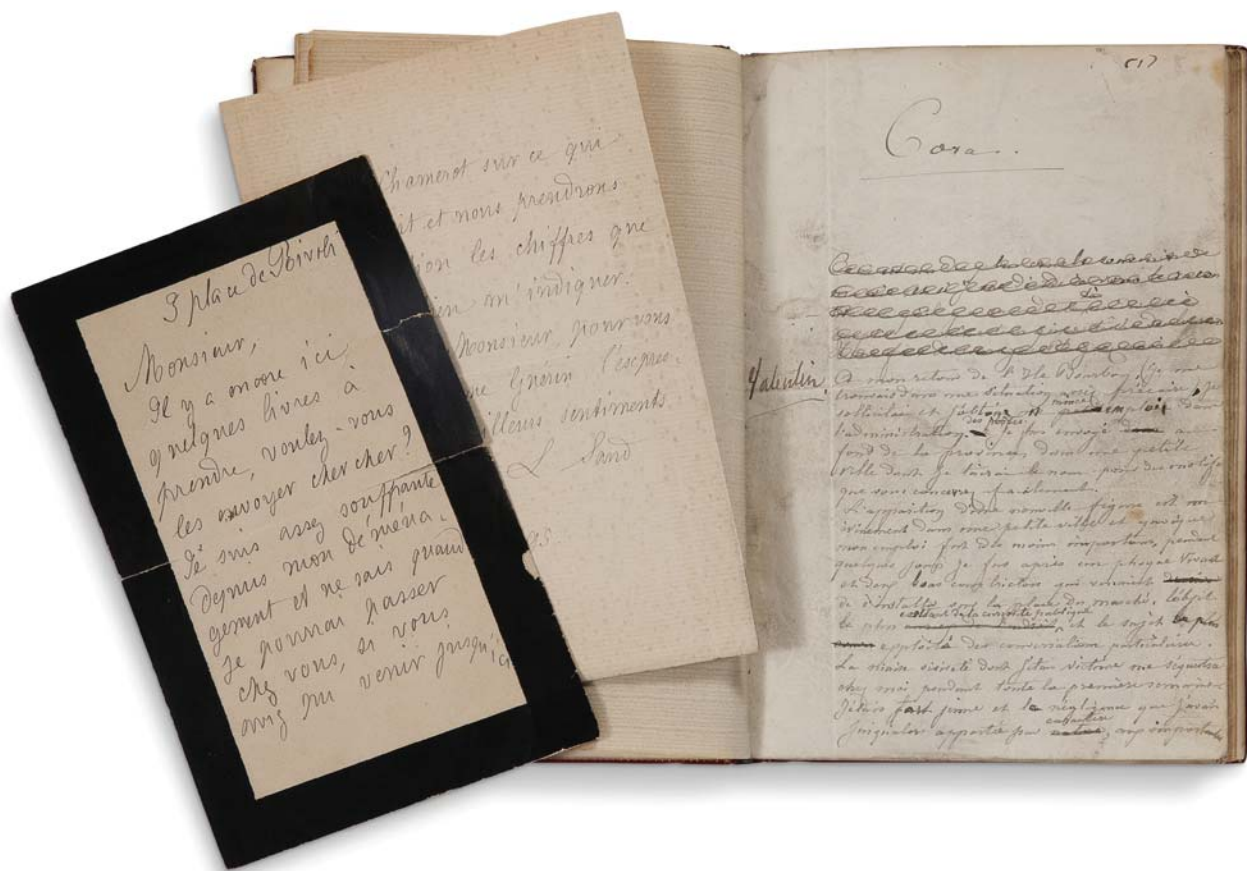 3 place de Rivoli
Monsieur,
Il y a encore ici
quelques livres à
prendre, voulez-vous
les envoyer chercher?
Je suis assez souffrante
depuis mon déména-
gement et ne sais quand
je pourrai passer
chez vous, si vous
pu venir jusqu'ici
Chamerot sur ce qui
it et nous prendrons
ion les chiffres que
ien m'indiquer.
Monsieur, pour vous
me Guérin l'expres-
illeurs sentiments
L Sand
Cora.
Valentin
A mon retour de l'Ile Bourbon (je me
trouvais dans une situation précaire) je
sollicitai et j'obtins un mince emploi dans
l'administration des postes. Je fus envoyé au
fond de la province, dans une petite
ville dont je tairai le nom pour des motifs
que vous concevrez facilement.
L'apparition d'une nouvelle figure est un
évènement dans une petite ville et quoique
mon emploi fut des moins importans, pendant
quelques jours je fus après un phoque vivant
et deux boas constrictors qui venaient
de s'installer sur la place du marché, l'objet
le plus excitant de la curiosité publique et le sujet le plus
exploité des conversations particulières.
La niaise oisiveté dont j'étais victime me séquestra
chez moi pendant toute la première semaine.
J'étais fort jeune et la négligence que j'avais
jusqu'alors apportée par caractère, aux importantes